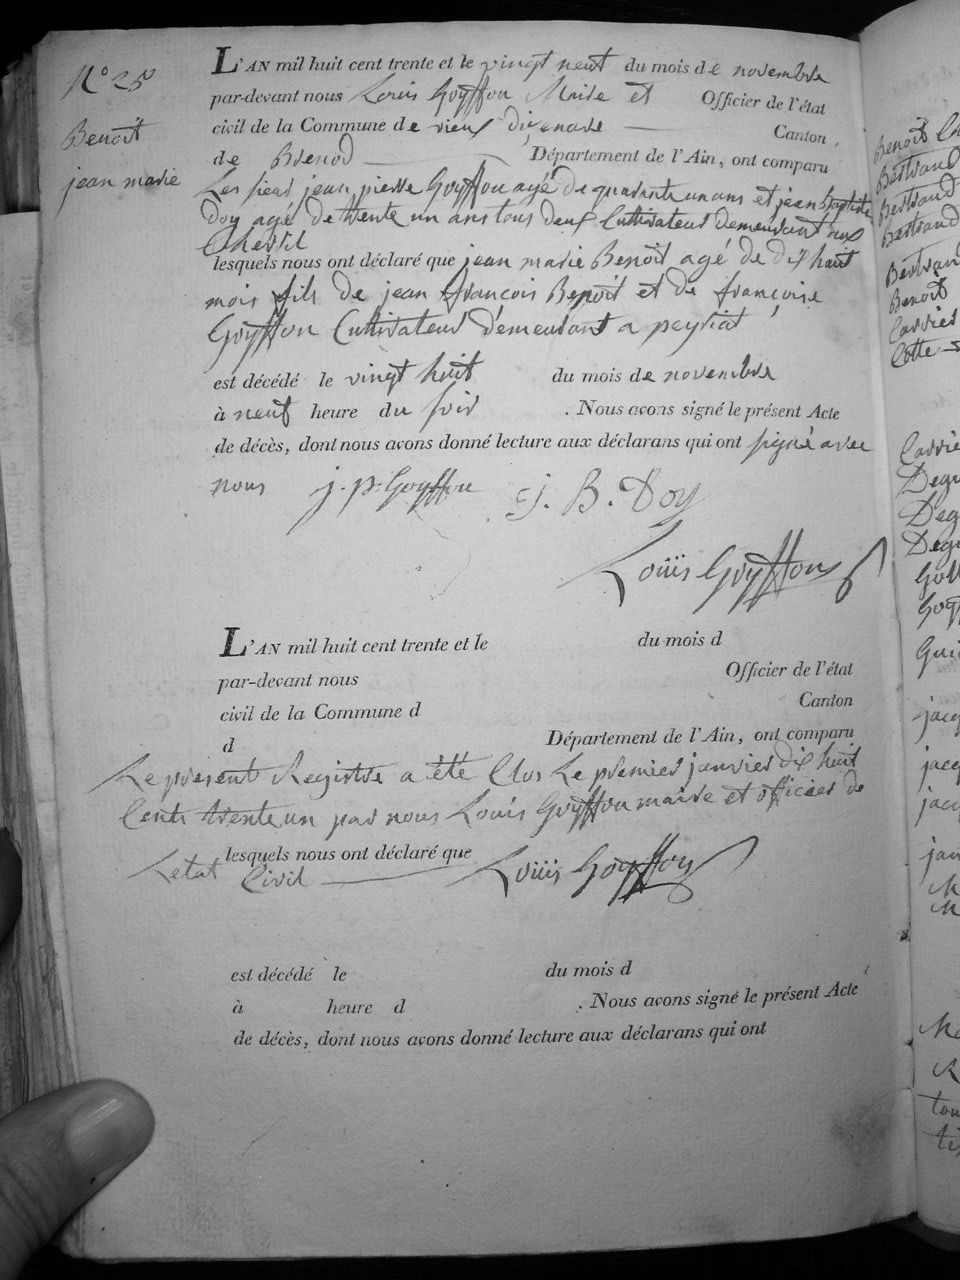 N° 25
Benoit
jean marie
L'AN mil huit cent trente et le vingt neuf du mois de novembre
par-devant nous Louis Goyffon Maire et Officier de l'état
civil de la Commune de vieux d'izenave Canton
de Brenod Département de l'Ain, ont comparu
Les sieur jean pierre Goyffon agé de quarante un ans et jean baptiste
Doy agé de trente un ans tous deux Cultivateur demeurant aux
Chevril
lesquels nous ont déclaré que jean marie Benoit agé de dix huit
mois fils de jean françois Benoit et de françoise
Goyffon Cultivateur demeurant a peyriat
est décédé le vingt huit du mois de novembre
à neuf heure du soir . Nous avons signé le présent Acte
de décès, dont nous avons donné lecture aux déclarans qui ont signé avec
nous j. p. Goyffon j. B. Doy
Louis Goyffon
L'AN mil huit cent trente et le du mois d
par-devant nous Officier de l'état
civil de la Commune d Canton
d Département de l'Ain, ont comparu
Le présent Registre a été Clos Le premier janvier dix huit
Cent trente un par nous Louis Goyffon maire et officier de
lesquels nous ont déclaré que
Letat Civil Louis Goyffon
est décédé le du mois d
à heure d . Nous avons signé le présent Acte
de décès, dont nous avons donné lecture aux déclarans qui ont
Benoit
Bertrand
Bertrand
Bertrand
Bertrand
Benoit
Carrier
Cotte